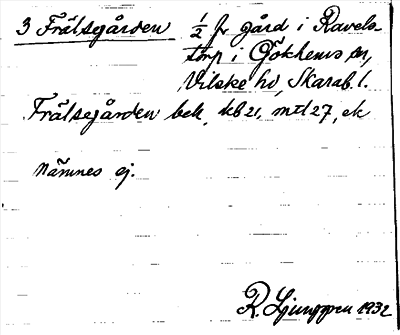 3 Frälsegården 1/2 fr gård i Ravels-
torp i Gökhems sn,
Vilske hd, Skarab. l.
Frälsegården bek, kb 21, mtl 27, ek
nämnes ej.
R. Ljunggren 1932